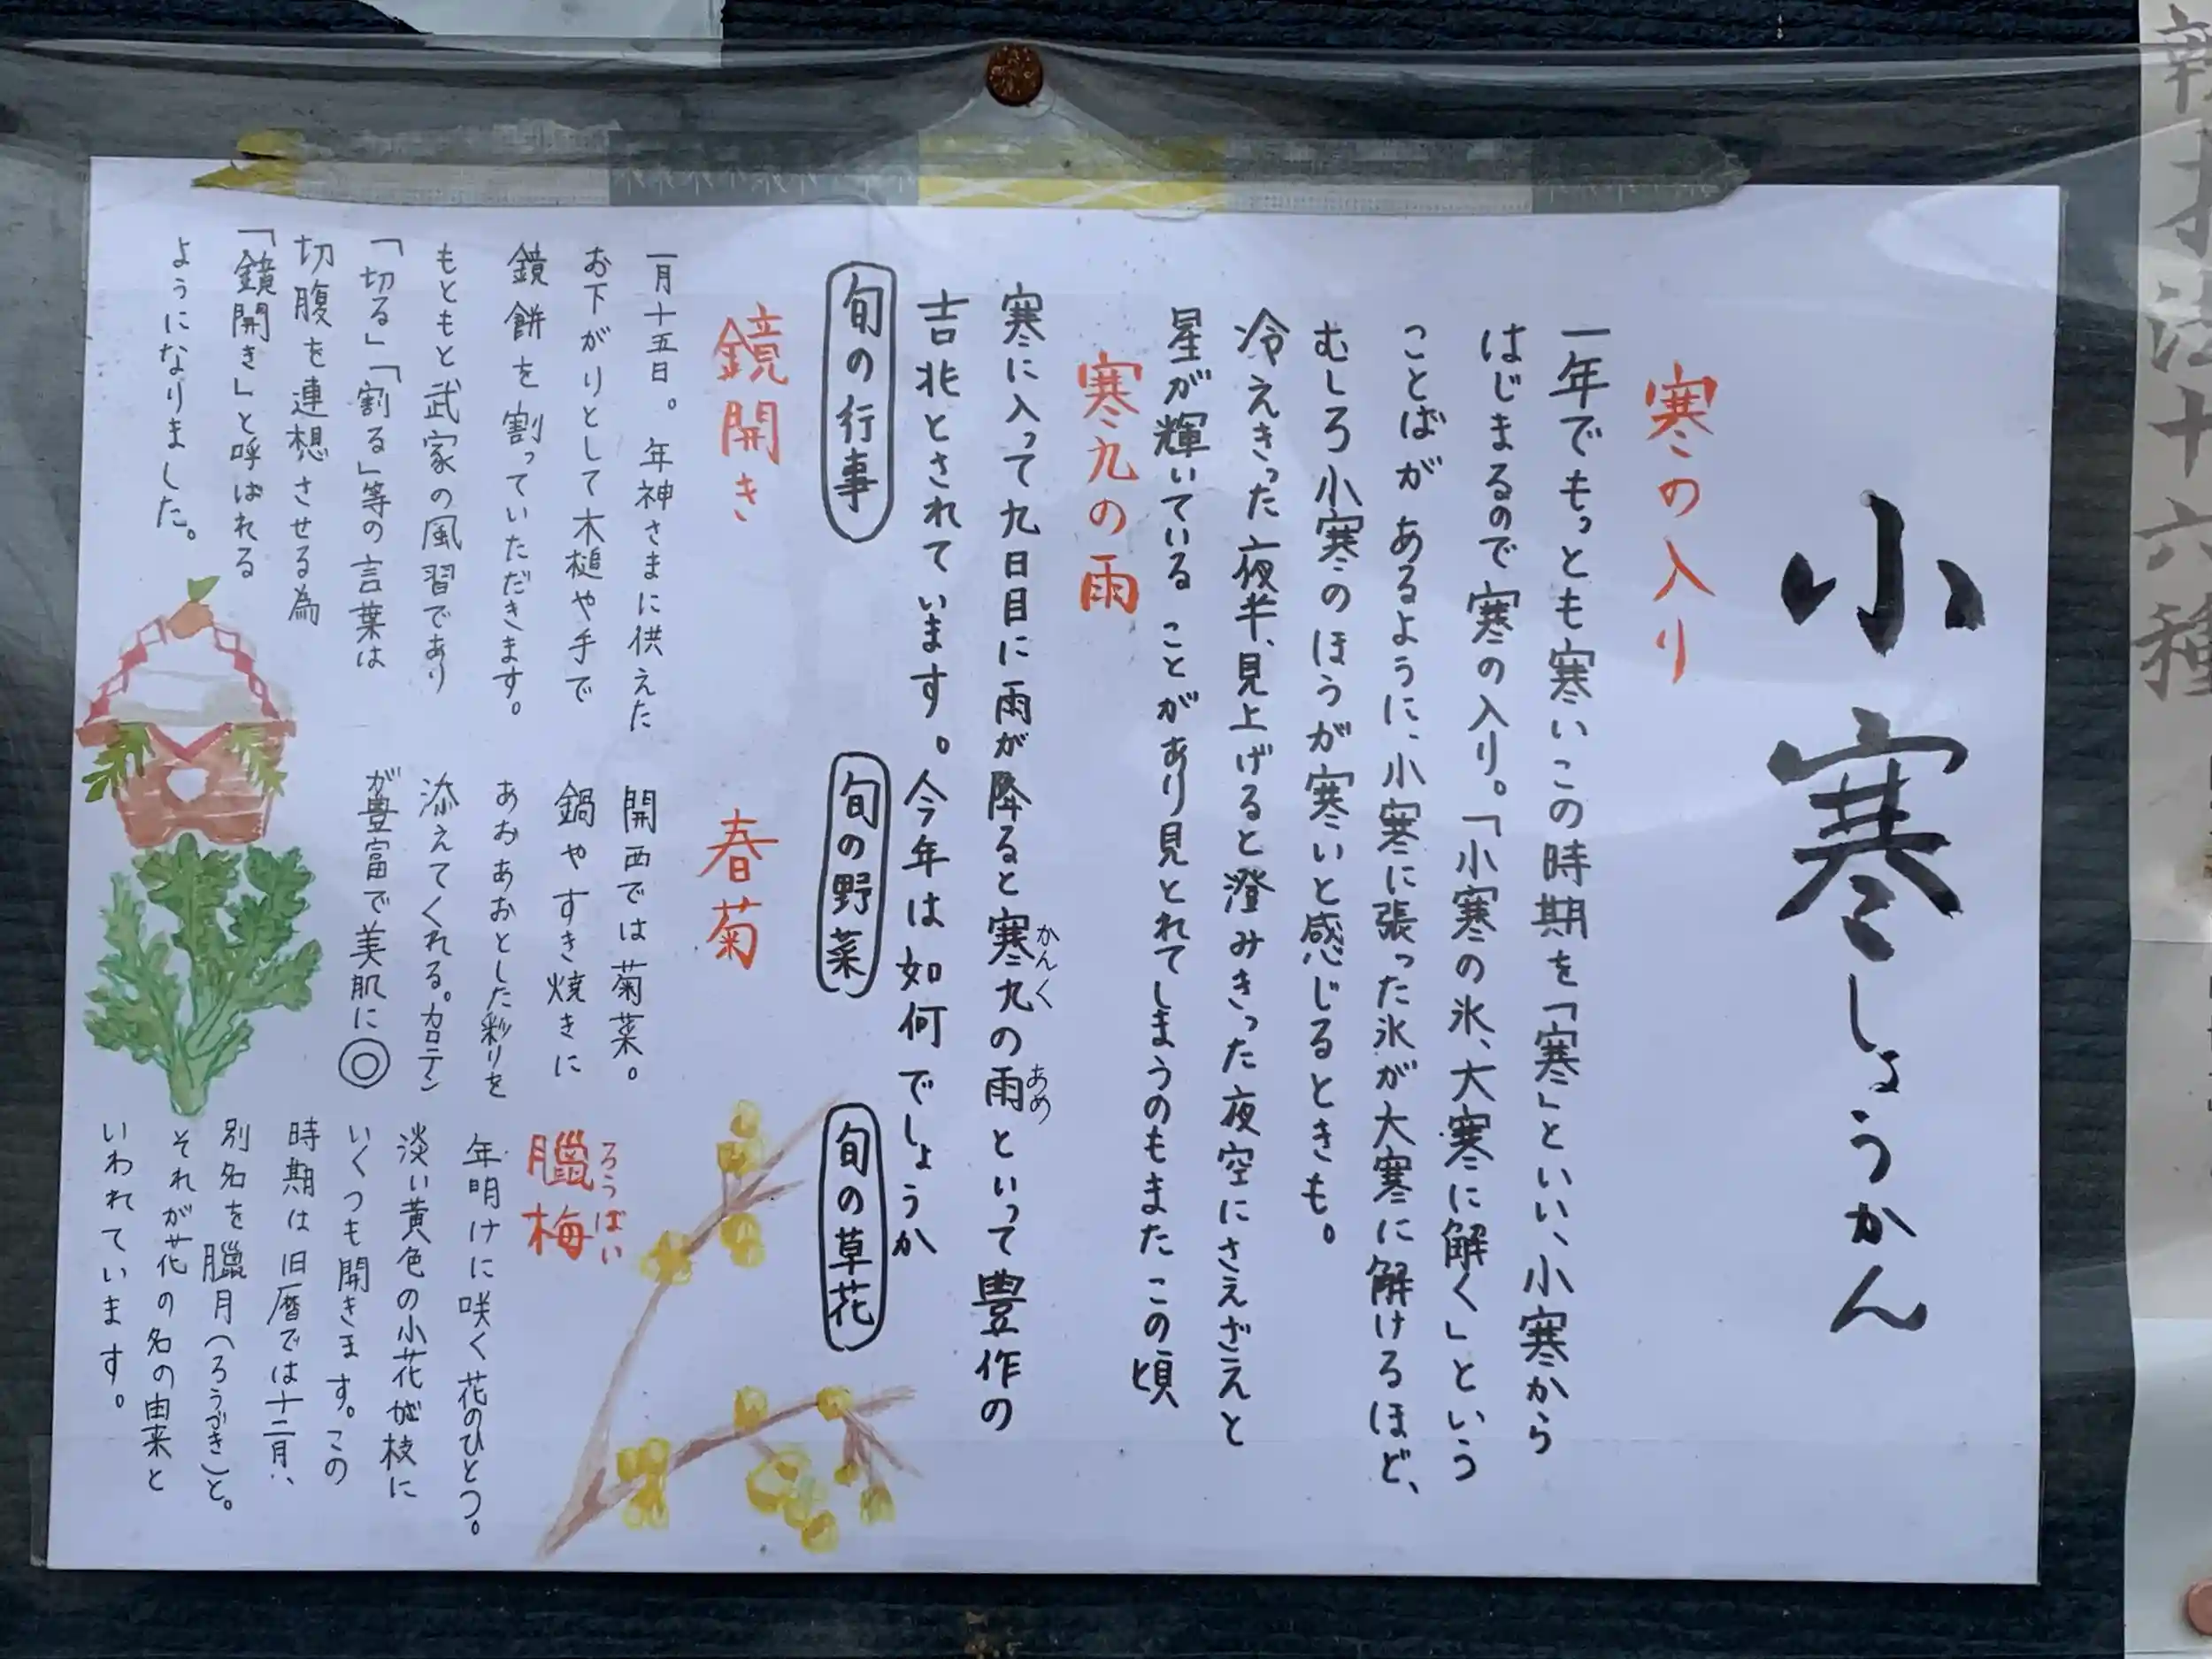 小寒しょうかん
寒の入り
一年でもっとも寒いこの時期を「寒」といい、小寒から
はじまるので寒の入り。「小寒の氷、大寒に解く」という
ことばがあるように、小寒に張った氷が大寒に解けるほど、
むしろ小寒のほうが寒いと感じるときも。
冷えきった夜半、見上げると澄みきった夜空にさえざえと
星が輝いていることがあり見とれてしまうのもまたこの頃
寒九の雨
寒に入って九日目に雨が降ると寒九の雨といって豊作の
かんく
あめ
吉兆とされています。今年は如何でしょうか
旬の行事
鏡開き
一月十五日。年神さまに供えた
お下がりとして木槌や手で
鏡餅を割っていただきます。
もともと武家の風習であり
「切る」「割る」等の言葉は
切腹を連想させる為
「鏡開き」と呼ばれる
ようになりました。
旬の野菜
春菊
関西では菊菜。
鍋やすき焼きに
あおあおとした彩りを
添えてくれる。カロテン
が豊富で美肌に◎
旬の草花
ろうばい
臘梅
年明けに咲く花のひとつ。
淡い黄色の小花が枝に
いくつも開きます。この
時期は旧暦では十二月、
別名を臘月(ろうげき)と。
それが花の名の由来と
いわれています。
十六種